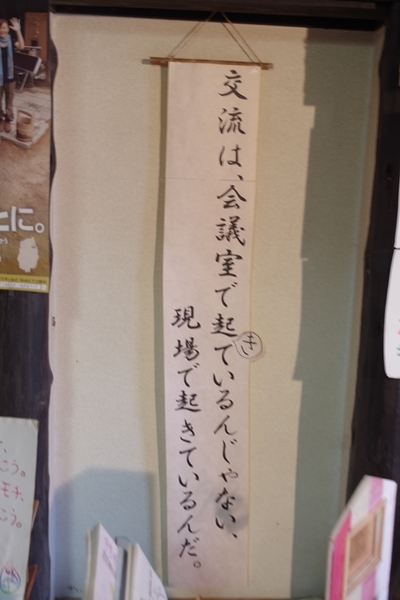 交流は、会議室で起ているんじゃない、
き
現場で起きているんだ。
とに。
こう。
モチ
こう。